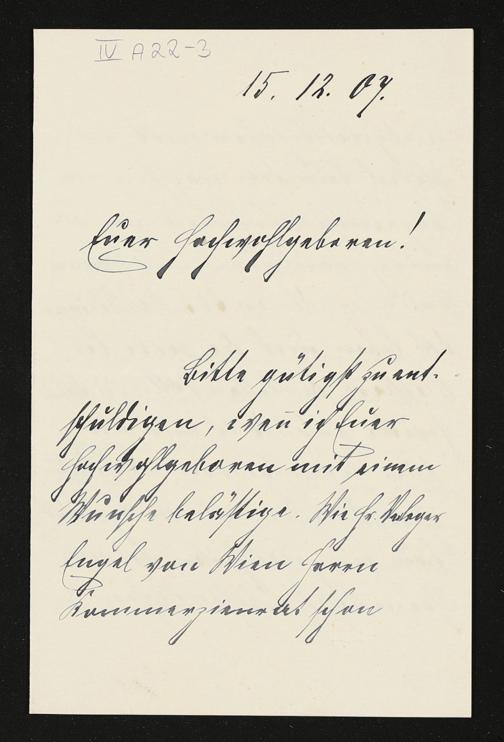 IV A 22-3
15. 12. 07.
Euer Hochwohlgeboren!
Bitte gütigst zu ent-
schuldigen, wenn ich Euer
Hochwohlgeboren mit einem
Wunsche belästige. Wie Hr.
Engel von Wien Herrn
Kommerzienrat schon